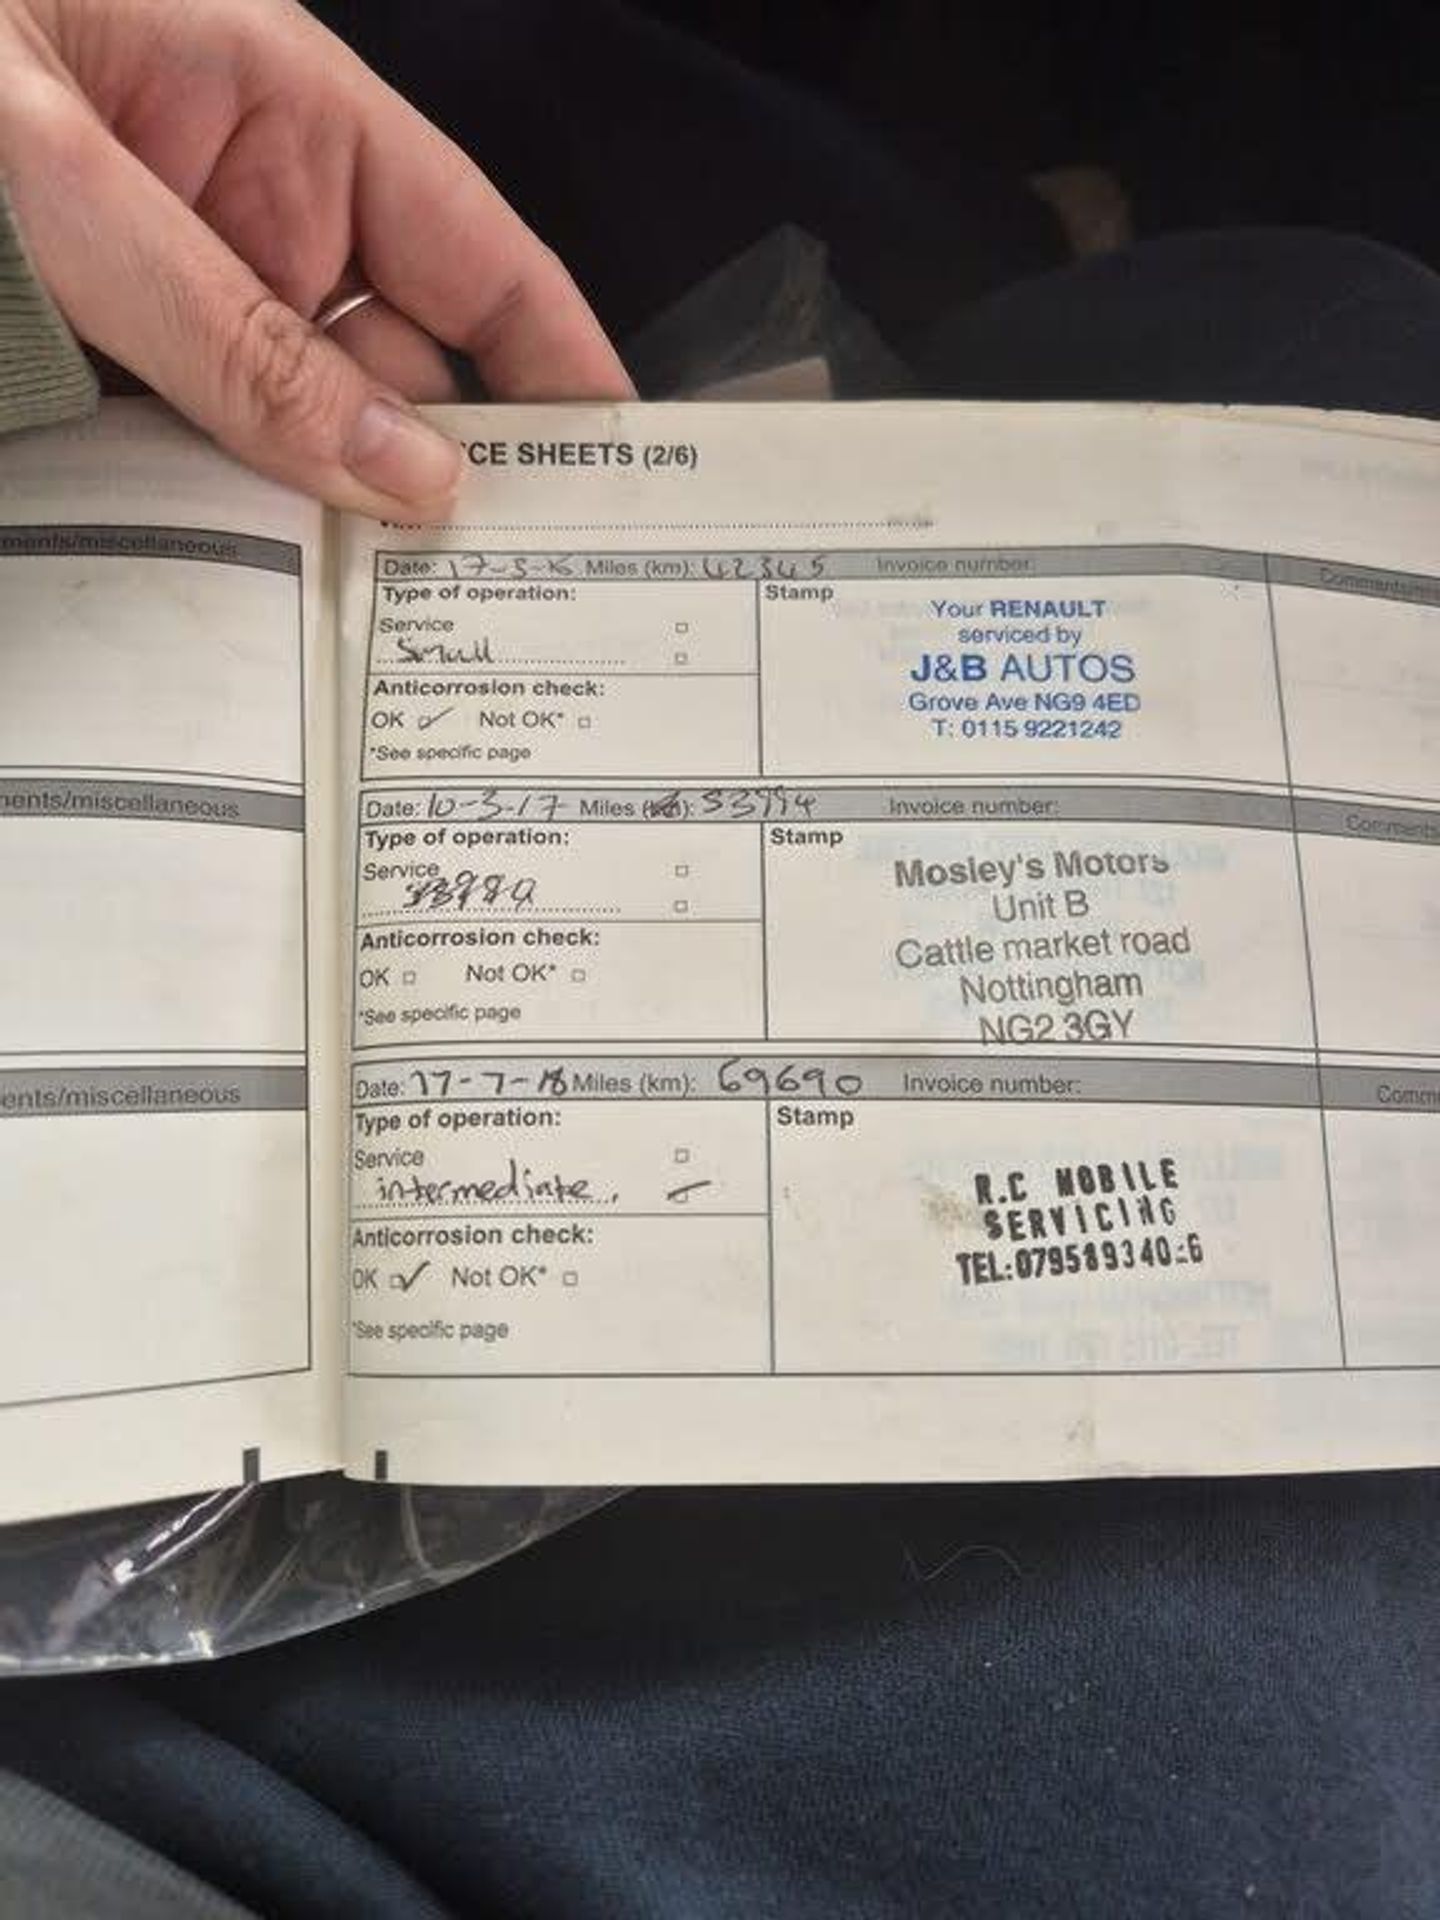 CE SHEETS (2/6)
ments/miscellaneous
Date: 17-5-16 Miles (km): 42345 Invoice number:
Type of operation:
Stamp
Service
Small
Anticorrosion check:
OK Not OK*
*See specific page
Your RENAULT
serviced by
J&B AUTOS
Grove Ave NG9 4ED
T: 0115 9221242
ments/miscellaneous
Date: 10-3-17 Miles (km): 53994 Invoice number:
Comments
Type of operation:
Stamp
Service
Anticorrosion check:
OK Not OK*
*See specific page
Mosley's Motors
Unit B
Cattle market road
Nottingham
NG2 3GY
ents/miscellaneous
Date: 17-7-18 Miles (km): 69690 Invoice number:
Comm
Type of operation:
Stamp
Service
intermediate.
Anticorrosion check:
OK Not OK*
*See specific page
R.C MOBILE
SERVICING
TEL: